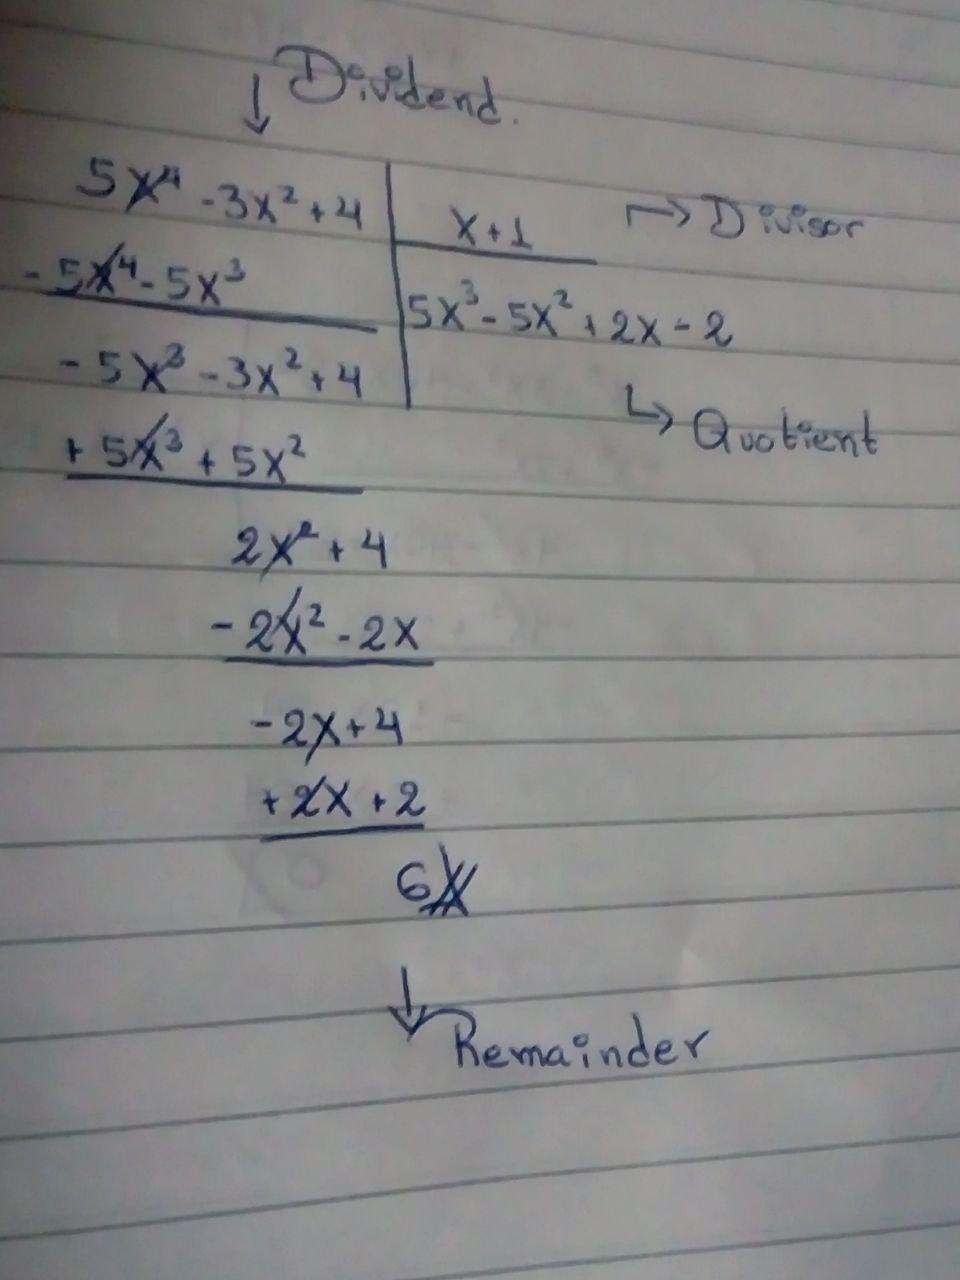 ↓ Dividend.
5x⁴ -3x² + 4 | x+1 → Divisor
-5x⁴ - 5x³ | 5x³ - 5x² + 2x - 2
-5x³ - 3x² + 4 ↳ Quotient
+ 5x³ + 5x²
2x² + 4
- 2x² - 2x
-2x + 4
+ 2x + 2
6
↓ Remainder